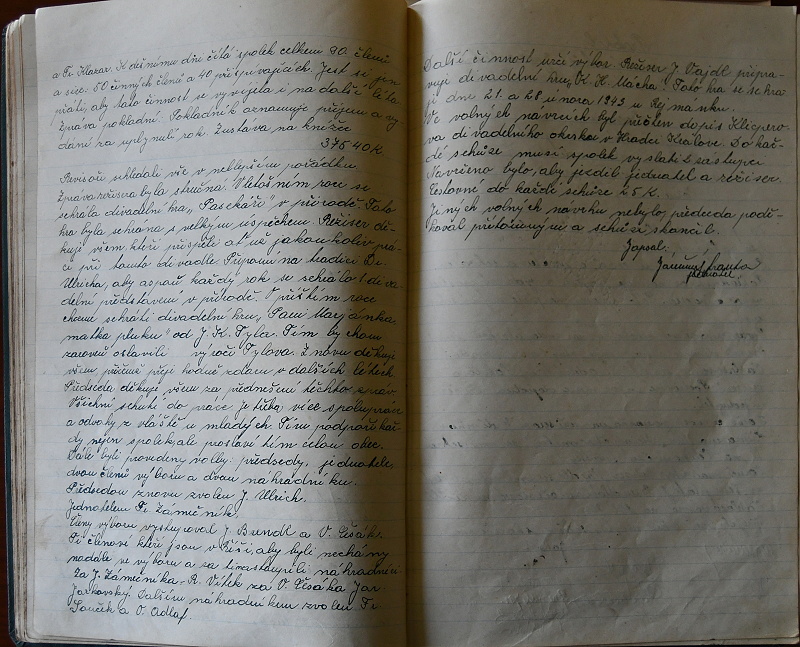 a Fr. Klazar. K dešnímu dni čítá spolek celkem 90 členů
a sice 50 činných členů a 40 přispívajících. Jest si jen
přáti, aby tato činnost se vyvíjela i na další léta
Zpráva pokladní. Pokladník oznamuje příjem a vy-
dání za uplynulý rok. Zůstává na knížce
3756 40 K.
Revisoři shledali vše v nejlepším pořádku
Zpráva režisra byla stručná. V letošním roce se
sehrála divadelní hra „Paličkář" v přírodě. Tato
hra byla sehrána s velkým úspěchem. Režiser dě-
kuje všem kteří přispěli ať už jakoukoliv prá-
ci při tomto divadle. Připomíná tradici Dr.
Ulricha, aby aspoň každý rok se sehrálo 1 diva-
delní představení v přírodě. V příštím roce
chceme sehráti divadelní hru „Paní Marjánka
matka pluku" od J. K. Tyla. Tím bychom
zároveň oslavili výročí Tylovo. Znovu děkuji
všem přeje hodně zdaru v dalších létech.
Předseda děkuje všem za přednešení těchto zpráv
Všichni s chutí do práce je třeba více spolupráce
a odvahy zvláště u mladých. Tím podpoří kaž-
dý nejen spolek, ale proslaví tím celou obec.
Dále byli provedeny volby: předsedy, jednatele,
dvou členů výboru a dvou náhradníků.
Předsedou znovu zvolen J. Ulrich.
Jednatelem Fr. Zámečník.
Členy výboru vystupoval J. Bundl a O. Pěšák.
Ti členové kteří jsou v Říši, aby byli necháni
nadále ve výboru a za ně zastoupili náhradníci
Za J. Zámečníka R. Vítek za O. Pěšáka Jar.
Jarkovský. Dalším náhradníkem zvolen Fr.
Souček a O. Adlaf.
Další činnost určí výbor. Režiser J. Vajdl připra-
vuje divadelní hru „K. H. Mácha". Tato hra se sehra-
je dne 21. a 28 února 1943 u Rejmánků.
Ve volných návrzích byl přečten dopis Klicpero-
va divadelního okrsku v Hradci Králové. Do kaž-
dé schůze musí spolek vyslati 1 zástupce
Navrženo bylo, aby jezdil jednatel a režiser.
Cestovné do každé schůze i 5 K.
Jiných volných návrhů nebylo, předseda podě-
koval přítomným a schůzi skončil.
Zapsal:
Zámečník Franta
jednatel